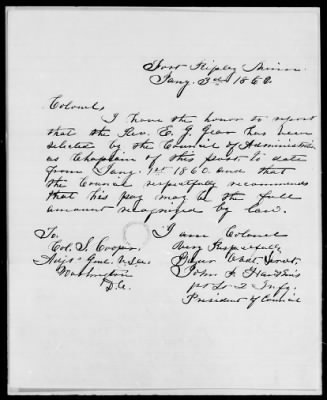 Fort Ripley Minn.
Jany. 3d 1860.
Colonel,
I have the honor to report
that the Rev. E. G. Gear has been
selected by the Council of Administration
as Chaplain of this post to date
from Jany. 1st 1860 and that
the Council respectfully recommends
that his pay may be the full
amount recognized by law.
To
Col. S. Cooper.
Adjt. Genl. U.S.A.
Washington
D.C.
I am Colonel
Very Respectfully
Your Obdt. Servt.
John
1st Lt 2 Infy.
President of Council